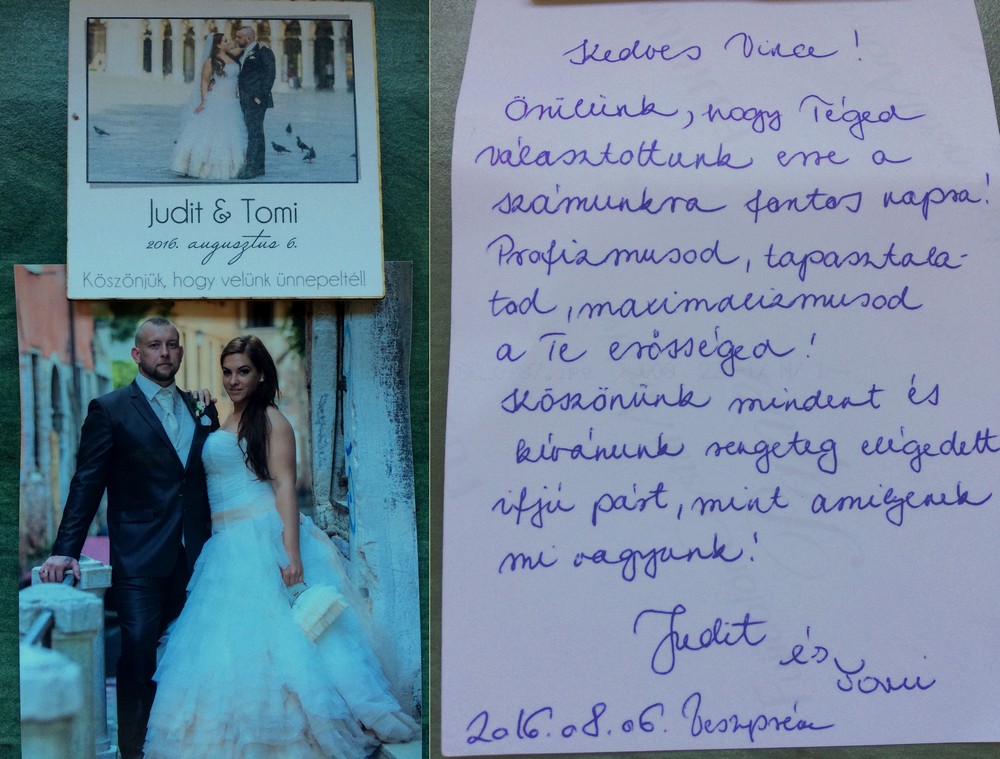 Judit & Tomi
2016. augusztus 6.
Köszönjük, hogy velünk ünnepeltél!
Kedves Vince!
Örülünk, hogy Téged
választottunk erre a
számunkra fontos napra!
Profizmusod, tapasztala-
tod, maximalizmusod
a Te erősséged!
Köszönünk mindent és
kívánunk rengeteg elégedett
ifjú párt, mint amilyenek
mi vagyunk!
Judit és Tomi
2016.08.06. Veszprém